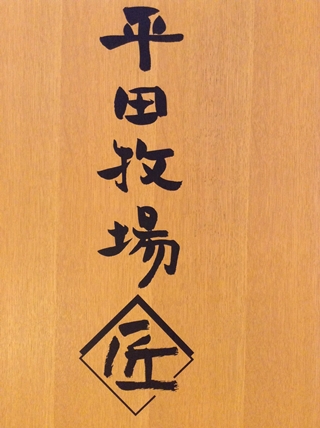 平田牧場
匠